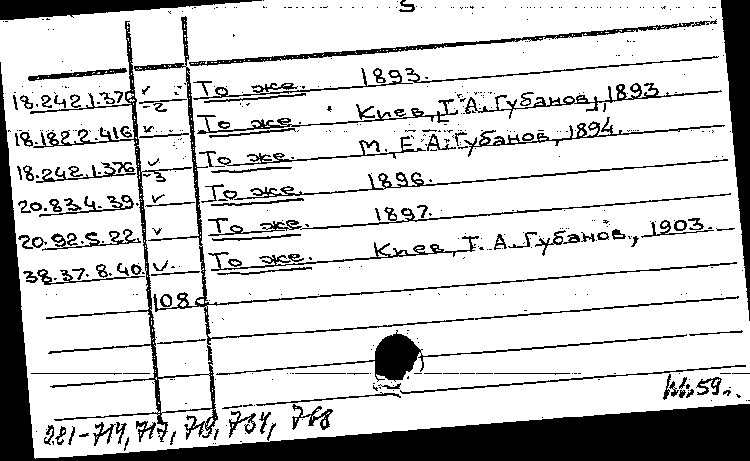 5
18.242.1.376-2 ✓ То же. 1893.
18.182.2.416 ✓ То же. Киев, Т. А. Губанов, 1893
18.242.1.376-3 ✓ То же. М., Е. А. Губанов, 1894.
20.83.4.39. ✓ То же. 1896.
20.92.5.22. ✓ То же. 1897.
38.37.8.40 ✓ То же. Киев, Т. А. Губанов, 1903.
108 с.
59
221-714, 717, 719, 764, 768